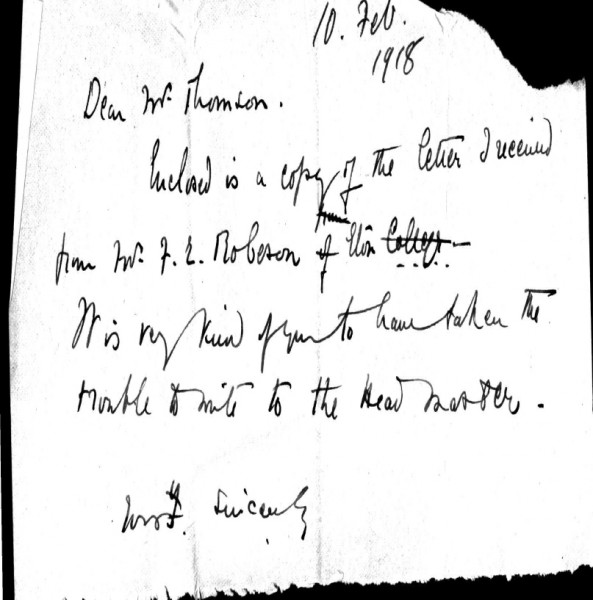 10. Feb.
1918
Dear Mr. Thomson.
Enclosed is a copy of the letter I received
from
from Mr. F. E. Robeson of Eton College -
It is very kind of you to have taken the
trouble to write to the Head Master.
Sincerely